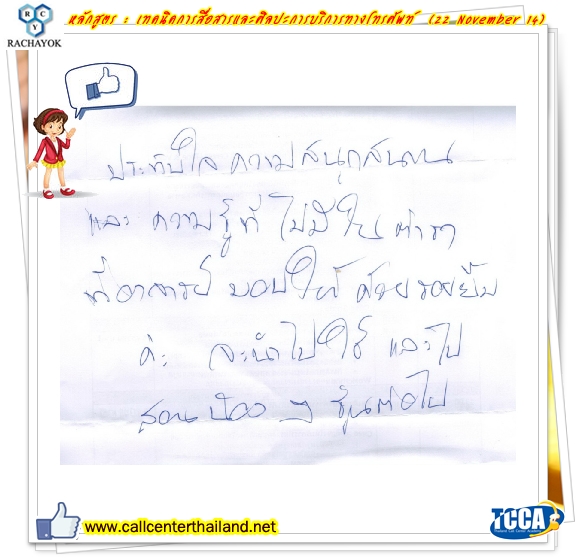 หลักสูตร : เทคนิคการสื่อสารและศิลปะการบริการทางโทรศัพท์ (22 November 14)
RCY
RACHAYOK
ประทับใจ ความสนุกสนาน
และ ความรู้ที่ ไม่มีใน ตำรา
ที่อาจารย์ มอบให้ ด้วยรอยยิ้ม
ค่ะ จะนำไปใช้ และไป
สอนน้อง ๆ รุ่นต่อไป
www.callcenterthailand.net
TCCA
Thailand Call Center Academy